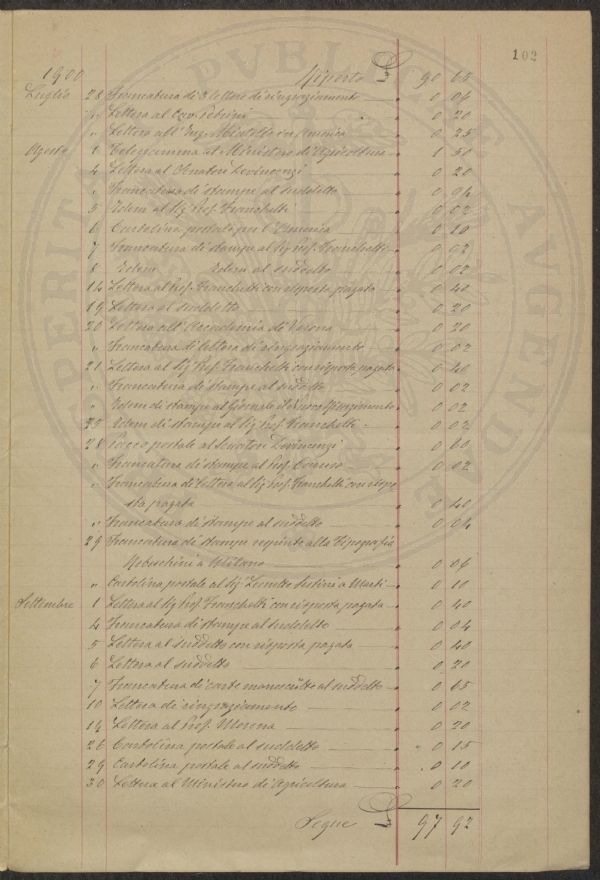 102
1900 Riporto L 90 68
Luglio 28 Francatura di 3 lettere di ringraziamento 0 06
" Lettera al Cav. Petrini 0 20
" Lettera all' Ing. in America 0 25
Agosto 1 Telegramma al Ministero d'Agricoltura 1 50
4 Lettera al Senatore Devincenzi 0 20
" Francatura di stampe al suddetto 0 04
5 Idem al Sig. Prof. Franchetti 0 02
6 Cartolina postale per l' 0 10
7 Francatura di stampe al Sig. Prof. Franchetti 0 02
8 Idem Idem al suddetto 0 02
14 Lettera al Prof. Franchetti con risposta pagata 0 40
19 Lettera al suddetto 0 20
20 Lettera all' Accademia di Verona 0 20
" Francatura di lettera di ringraziamento 0 02
21 Lettera al Sig. Prof. Franchetti con risposta pagata 0 40
" Francatura di stampe al suddetto 0 02
" Idem di stampe al Giornale il Nuovo 0 02
Idem di stampe al Sig. Prof. Franchetti 0 02
28 Pacco postale al Senatore Devincenzi 0 60
" Francatura di stampe al Prof. Caruso 0 02
" Francatura di lettera al Sig. Prof. Franchetti con rispo
sta pagata 0 40
" Francatura di stampe al suddetto 0 04
29 Francatura di stampe alla Tipografia
Rebeschini a Milano 0 06
" Cartolina postale al Sig. a 0 10
Settembre 1 Lettera al Sig. Prof. Franchetti con risposta pagata 0 40
4 Francatura di stampe al suddetto 0 04
5 Lettera al suddetto con risposta pagata 0 40
6 Lettera al suddetto 0 20
7 Francatura di carte manoscritte al suddetto 0 65
10 Lettera di ringraziamento 0 02
14 Lettera al Prof. Morena 0 20
26 Cartolina postale al suddetto 0 15
29 Cartolina postale al suddetto 0 10
30 Lettera al Ministero di Agricoltura 0 20
Segue L 97 92